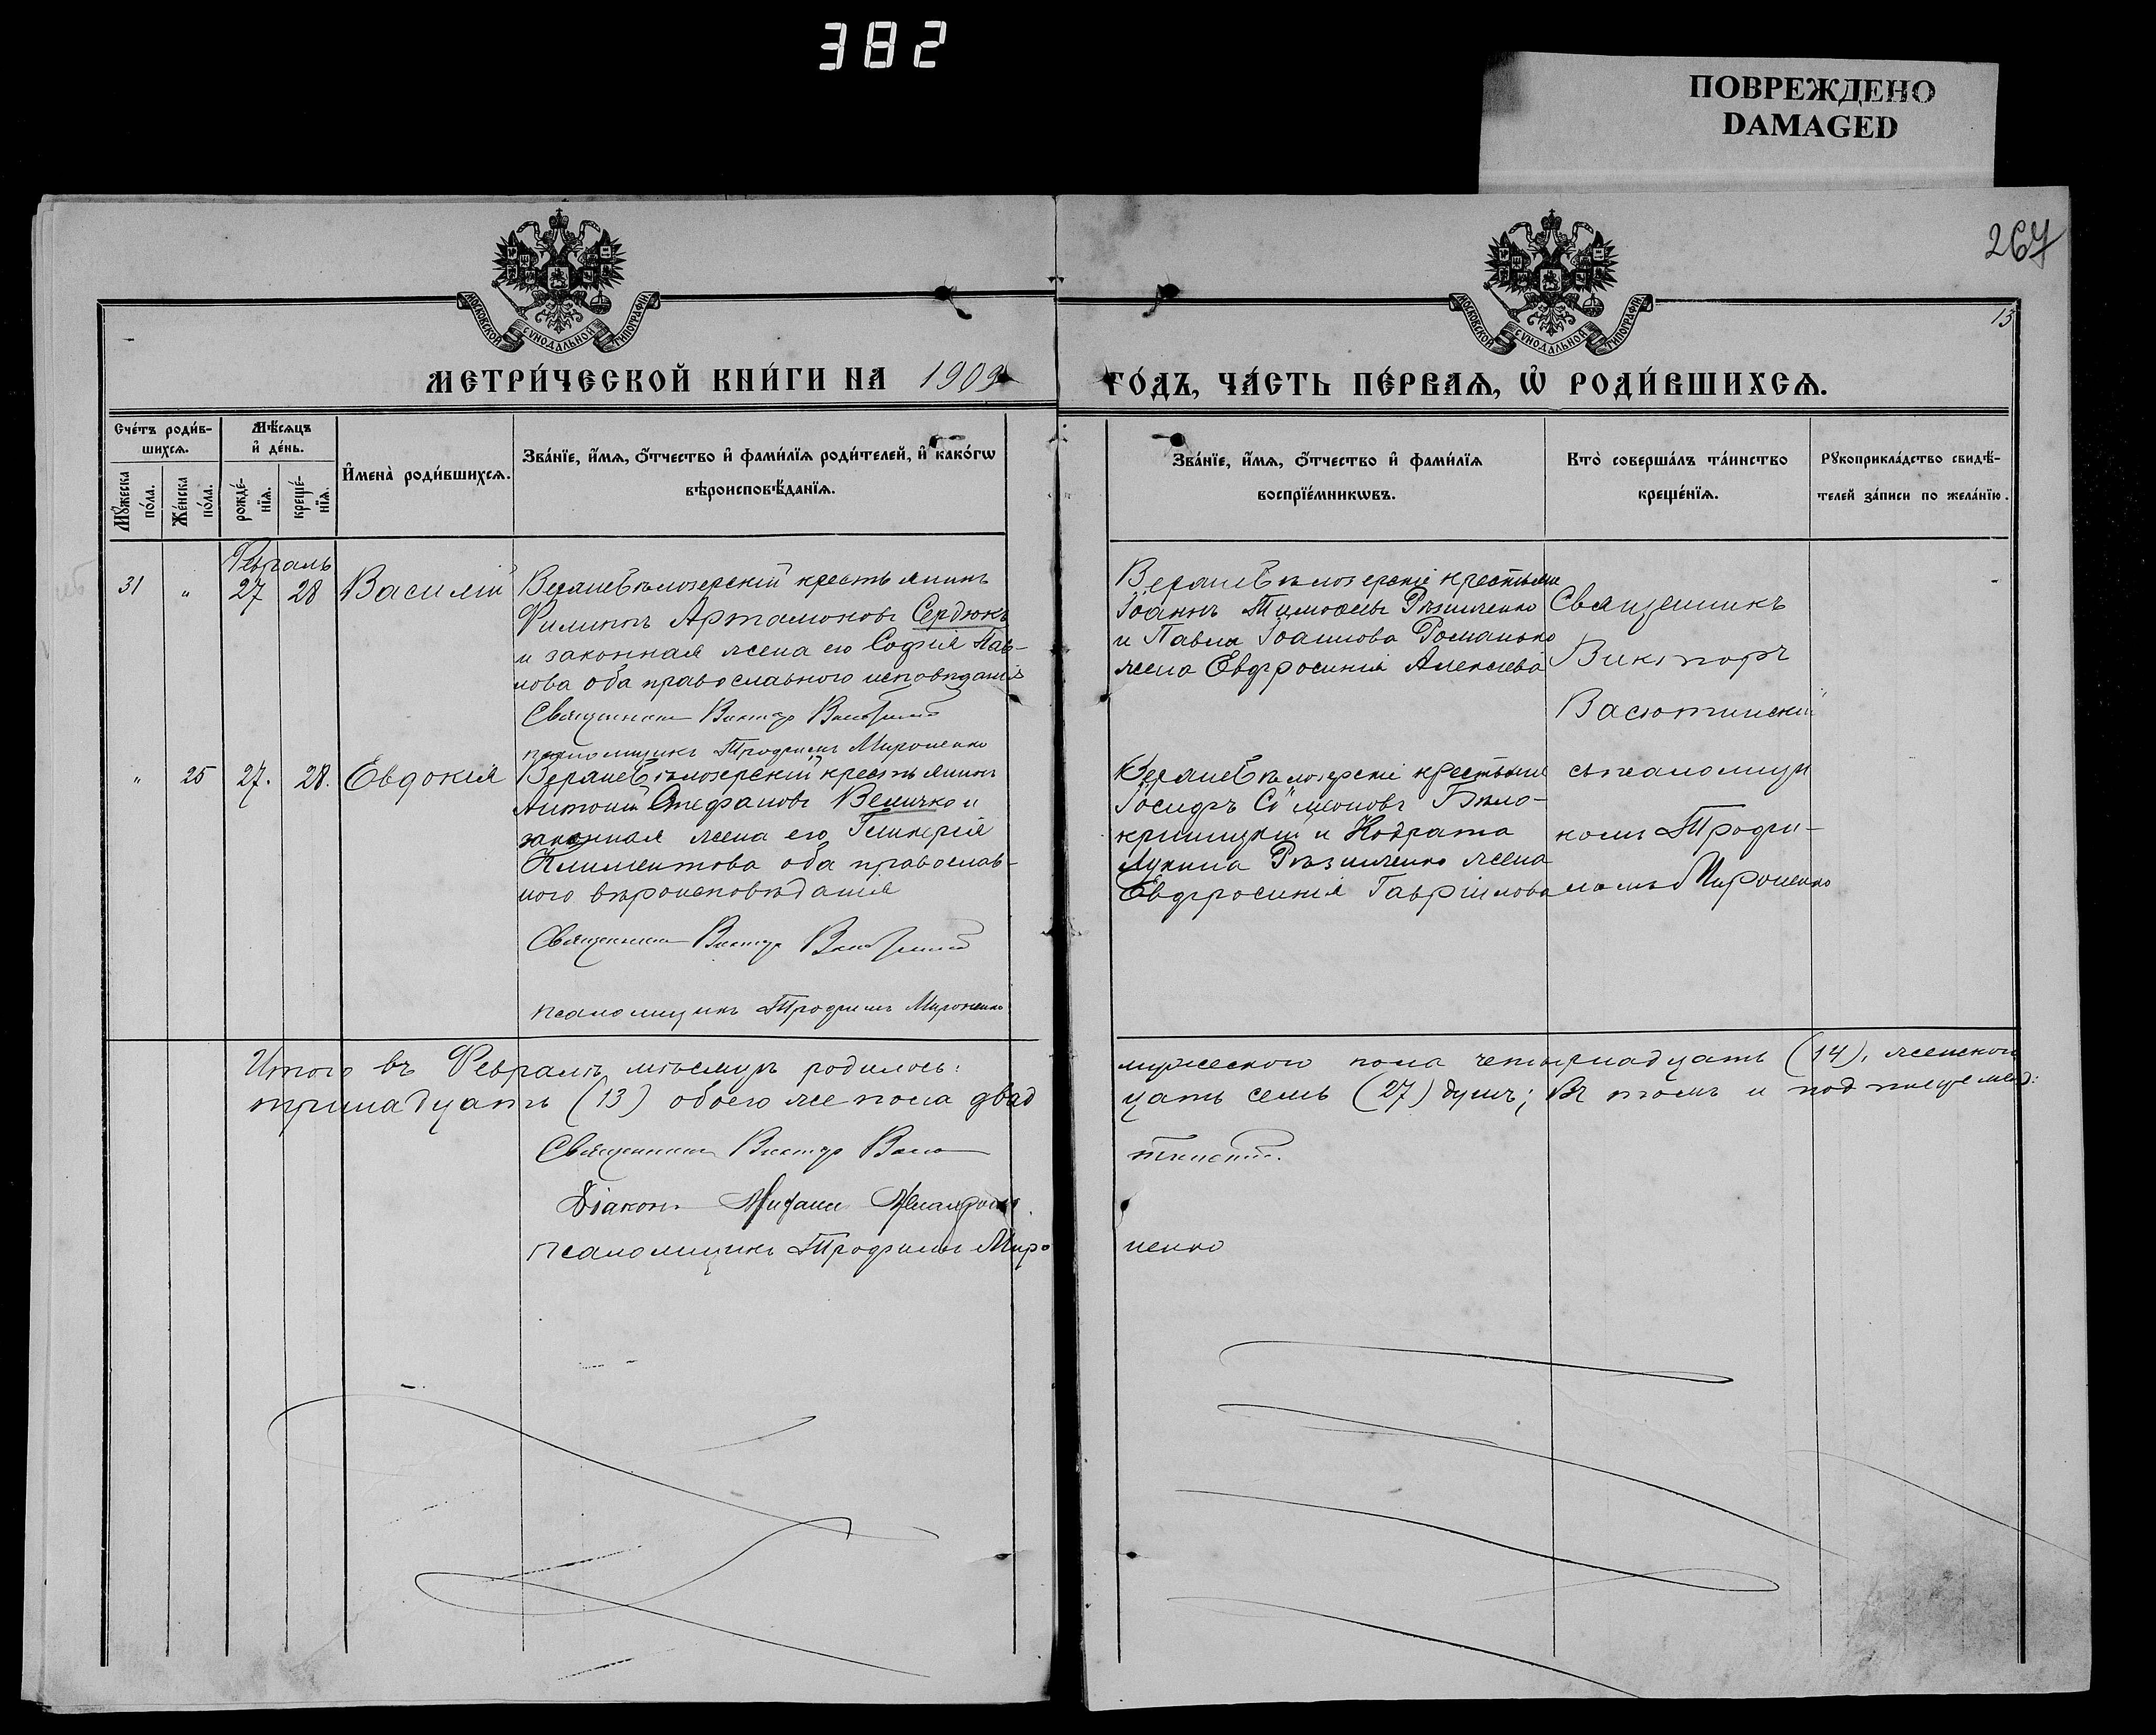 382
ПОВРЕЖДЕНО
DAMAGED
267
15
МОСКОВСКОЙ СѴНОДАЛЬНОЙ ТИПОГРАФІИ
МОСКОВСКОЙ СѴНОДАЛЬНОЙ ТИПОГРАФІИ
МЕТРИ́ЧЕСКОЙ КНИ́ГИ НА 1909
ГО́ДЪ, ЧА́СТЬ ПЕ́РВАѦ, Ѡ҆ РОДИ́ВШИХСѦ.
Сче́тъ роди́в-
шихсѧ.
Мѣ́сѧцъ
и҆ де́нь.
Мꙋ́жеска
по́ла.
Же́нска
по́ла.
рожде́-
нїѧ.
креще́-
нїѧ.
И҆мена̀ роди́вшихсѧ.
Зва́нїе, и҆́мѧ, ѻ҆́тчество и҆ фами́лїѧ роди́телей, и҆ како́гѡ
вѣроисповѣ́данїѧ.
Зва́нїе, и҆́мѧ, ѻ҆́тчество и҆ фами́лїѧ
воспрїе́мникѡвъ.
Кто̀ соверша́лъ та́инство
креще́нїѧ.
Рꙋкоприкла́дство свидѣ́-
телей за́писи по жела́нїю.
Февраль
31 " 27 28 Василій
Верхнебѣлозерскій крестьянинъ
Филиппъ Артамоновъ Сердюкъ
и законная жена его Софія Пав-
лова оба православнаго исповѣданія
Священникъ Викторъ Васютинскій
псаломщикъ Трофимъ Мироненко
Верхнебѣлозерскіе крестьяне
Іоаннъ Тимофеевъ Рѣзниченко
и Павла Іоаннова Романько
жена Евфросинія Алексіева
Священникъ
Викторъ
Васютинскій
" 25 27. 28. Евдокія
Верхнебѣлозерскій крестьянинъ
Антоній Стефановъ Величко и
законная жена его Гликерія
Климентова оба православ-
ного вѣроисповѣданія
Священникъ Викторъ Васютинскій
псаломщикъ Трофимъ Мироненко
Верхнебѣлозерскіе крестьяне
Іосифъ Симеоновъ Бѣло-
криницкій и Кодрата
Лукина Рѣзниченко жена
Евфросинія Гавріилова
съ псаломщи
комъ Трофи-
момъ Мироненко
Итого въ Февралѣ мѣсяцѣ родилось:
мужескаго пола четырнадцать (14), женскаго
тринадцать (13) обоего же пола двад
цать семь (27) душъ; въ томъ и подписуемся:
Священникъ Викторъ Васю
тинскій.
Діаконъ
псаломщикъ Трофимъ Миро
ненко